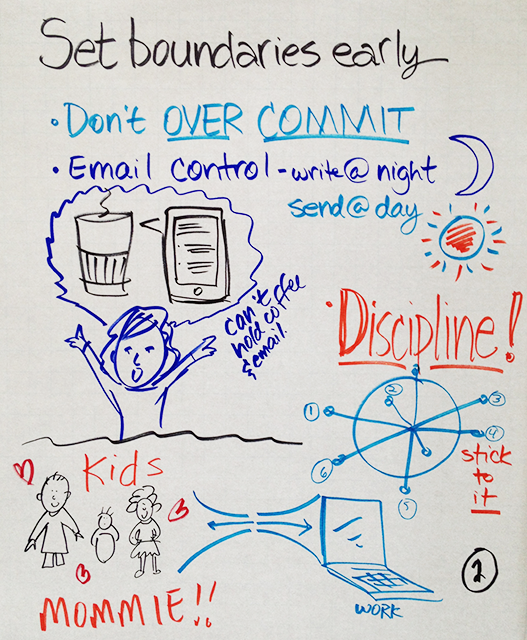 Set boundaries early
• Don't OVER COMMIT
• Email control - write@ night
send@ day
can't
hold coffee
& email.
• Discipline!
1
2
3
4
5
6
stick
to
it
Kids
MOMMIE!!
WORK
2